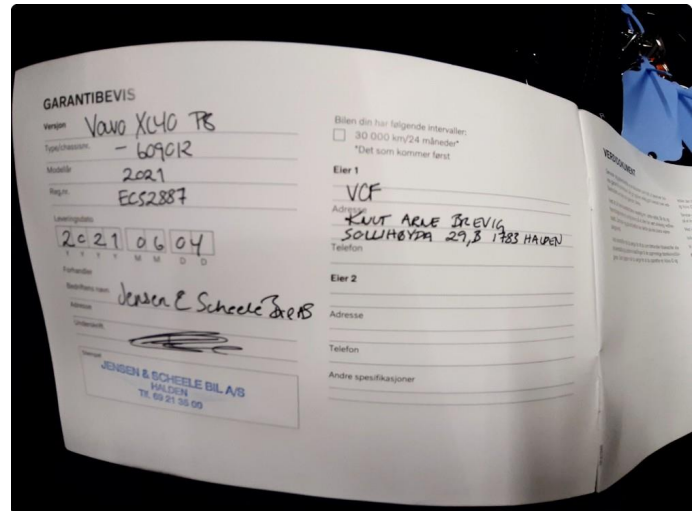 GARANTIBEVIS
Versjon Volvo XC40 P8
Type/chassisnr. - 609012
Modellår 2021
Reg.nr. EC52887
Leveringsdato
2021 06 04
Y Y Y Y M M D D
Forhandler
Bedriftens navn Jensen & Scheele Bil AS
Adresse
Underskrift
Stempel
JENSEN & SCHEELE BIL A/S
HALDEN
Tlf. 69 21 35 00
Bilen din har følgende intervaller:
30 000 km/24 måneder*
*Det som kommer først
Eier 1
VCF
Adresse KNUT ARNE BREVIG
SOLLIHØYDA 29,B 1783 HALDEN
Telefon
Eier 2
Adresse
Telefon
Andre spesifikasjoner
VERDIDOKUMENT